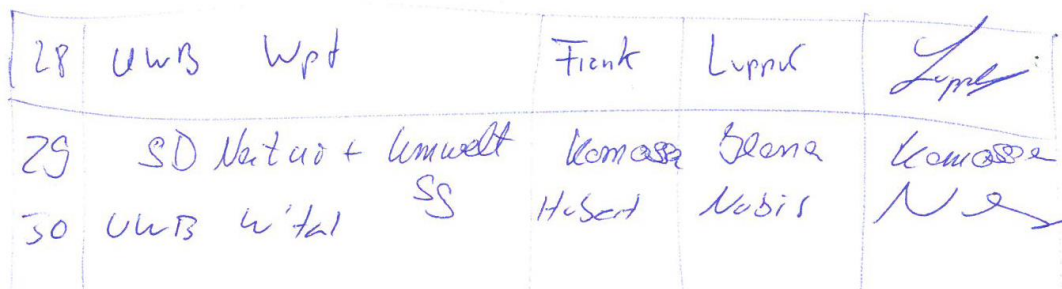 28 UWB Wpt Frank Luppus
29 SD Natur + Umwelt Komossa Komossa
SG
30 UWB W'tal Hubert Nobis